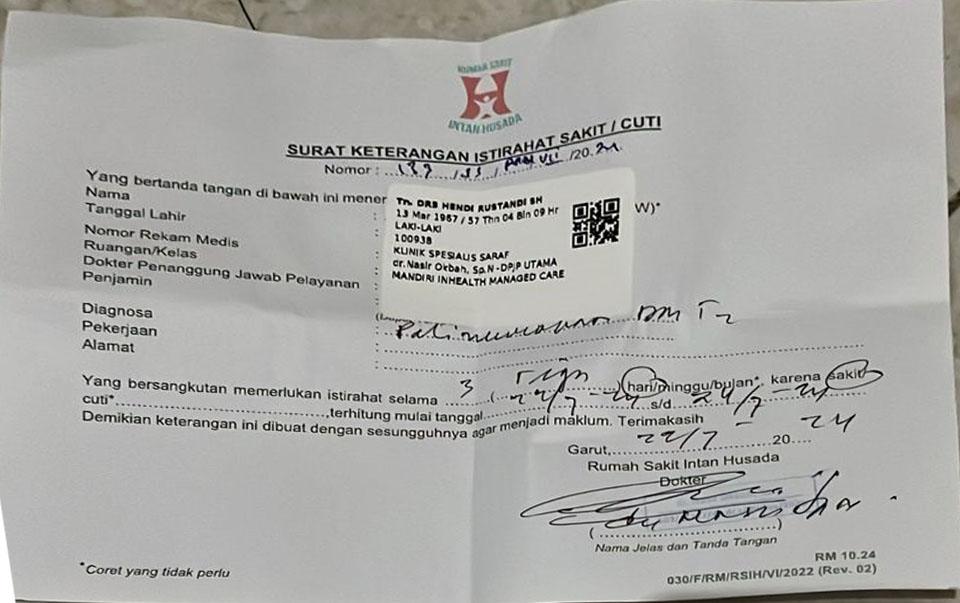 RUMAH SAKIT
INTAN HUSADA
SURAT KETERANGAN ISTIRAHAT SAKIT / CUTI
Nomor : /20.24
Yang bertanda tangan di bawah ini mener W)*
Nama :
Tanggal Lahir :
Nomor Rekam Medis :
Ruangan/Kelas :
Dokter Penanggung Jawab Pelayanan :
Penjamin :
Tn. DRS HENDI RUSTANDI SH
13 Mar 1967 / 57 Thn 04 Bln 09 Hr
LAKI-LAKI
100938
KLINIK SPESIALIS SARAF
dr. Nasir Okbah, Sp.N - DPJP UTAMA
MANDIRI INHEALTH MANAGED CARE
Diagnosa : DM
Pekerjaan :
Alamat :
Yang bersangkutan memerlukan istirahat selama 3 (Tiga) hari/minggu/bulan*, karena sakit/
cuti*, terhitung mulai tanggal 22/7-24 s/d 24/7-24
Demikian keterangan ini dibuat dengan sesungguhnya agar menjadi maklum. Terimakasih
Garut, 22/7 - 20 24
Rumah Sakit Intan Husada
Dokter
(....................)
Nama Jelas dan Tanda Tangan
*Coret yang tidak perlu
RM 10.24
030/F/RM/RSIH/VI/2022 (Rev. 02)